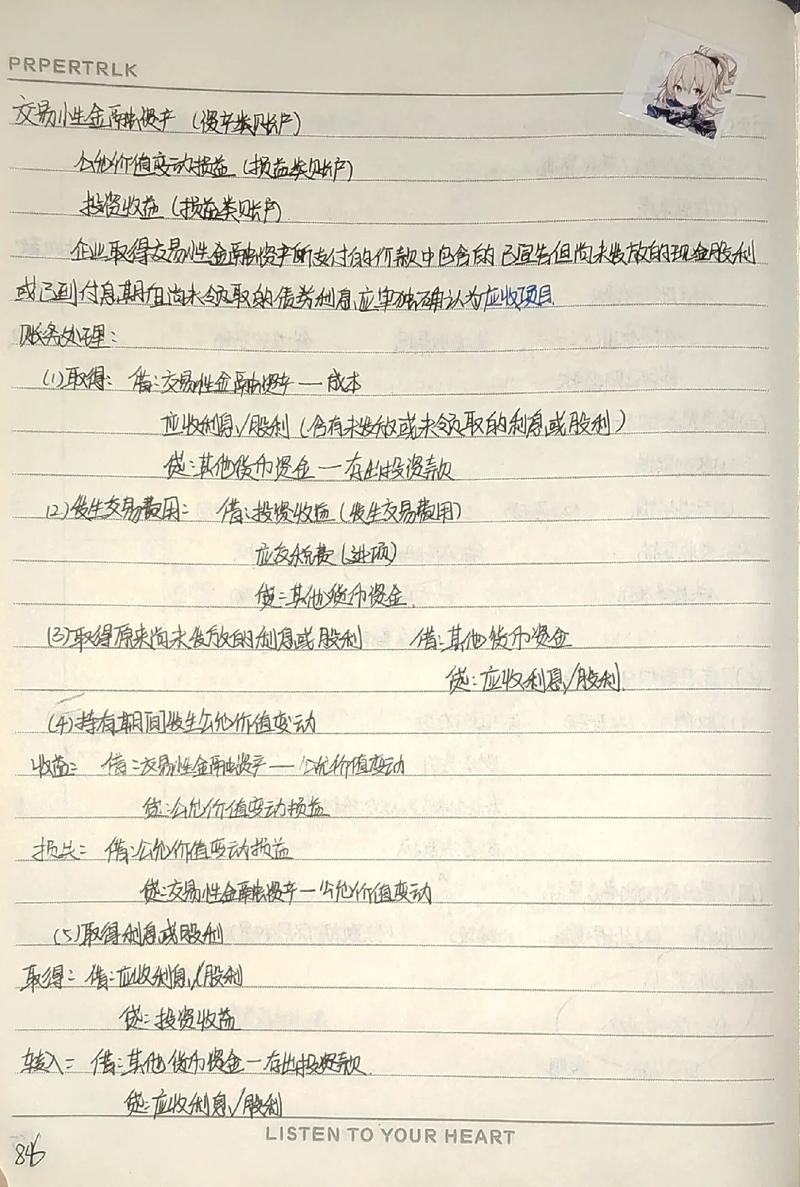 PRPERTRLK
交易性金融资产（资产类账户）
公允价值变动损益（损益类账户）
投资收益（损益类账户）
企业取得交易性金融资产所支付的价款中包含的已宣告但尚未发放的现金股利
或已到付息期但尚未领取的债券利息,应单独确认为应收项目.
账务处理：
(1)取得：借：交易性金融资产—成本
应收利息/股利（含有未发放或未领取的利息或股利）
贷：其他货币资金—存出投资款
(2)发生交易费用：借：投资收益（发生交易费用）
应交税费（进项）
贷：其他货币资金.
(3)取得原来尚未发放的利息或股利 借：其他货币资金
贷：应收利息/股利.
(4)持有期间发生公允价值变动
收益：借：交易性金融资产—公允价值变动
贷：公允价值变动损益
损失：借：公允价值变动损益
贷：交易性金融资产—公允价值变动
(5)取得利息或股利
取得：借：应收利息/股利
贷：投资收益
转入：借：其他货币资金—存出投资款.
贷：应收利息/股利
LISTEN TO YOUR HEART